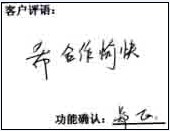 客户评语：
希合作愉快
功能确认：